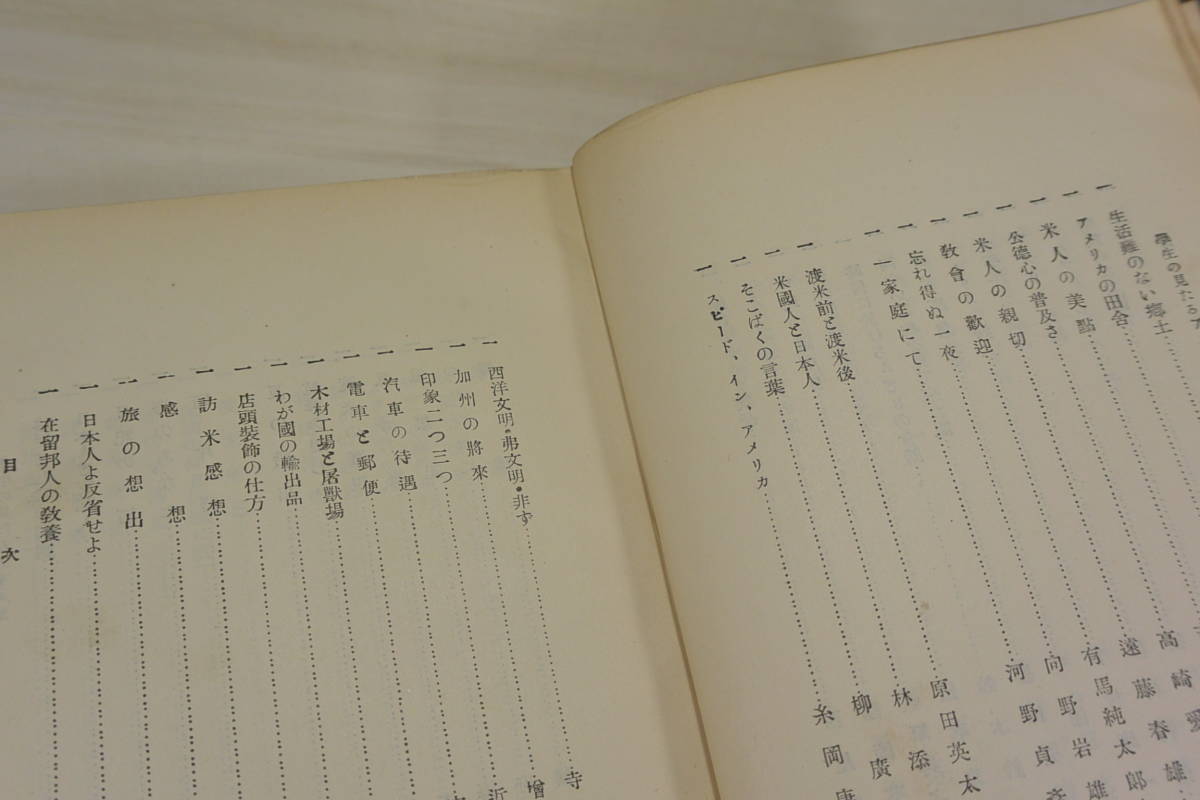 學生の見たるア
一 生活難のない鄕土
一 アメリカの田舎 高崎愛
一 米人の美點 遠藤春雄
一 公德心の普及さ 有馬純太郎
一 米人の親切 向野岩雄
一 敎會の歡迎 河野貞
一 忘れ得ぬ一夜
一 一家庭にて 原田英太
一 渡米前と渡米後 林添
一 米國人と日本人 柳廣
一 そこばくの言葉 糸岡康
一 スピード、イン、アメリカ
一 西洋文明・弗文明・非ず 寺
一 加州の將來 增
一 印象二つ三つ 近
一 汽車の待遇
一 電車と郵便
一 木材工場と屠獸場
一 わが國の輸出品
一 店頭裝飾の仕方
一 訪米感想
一 感想
一 旅の想出
一 日本人よ反省せよ
一 在留邦人の敎養
目次